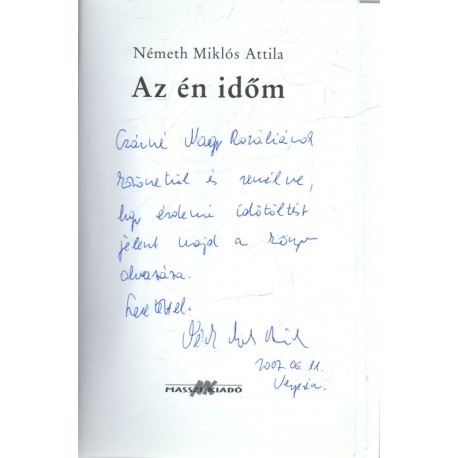 Németh Miklós Attila
Az én időm
Czárné Nagy Rozáliának
köszönettel és remélve,
hogy érdemi időtöltést
jelent majd a könyv
olvasása.
Szeretettel.
2007.06.11.
MASSZI KIADÓ